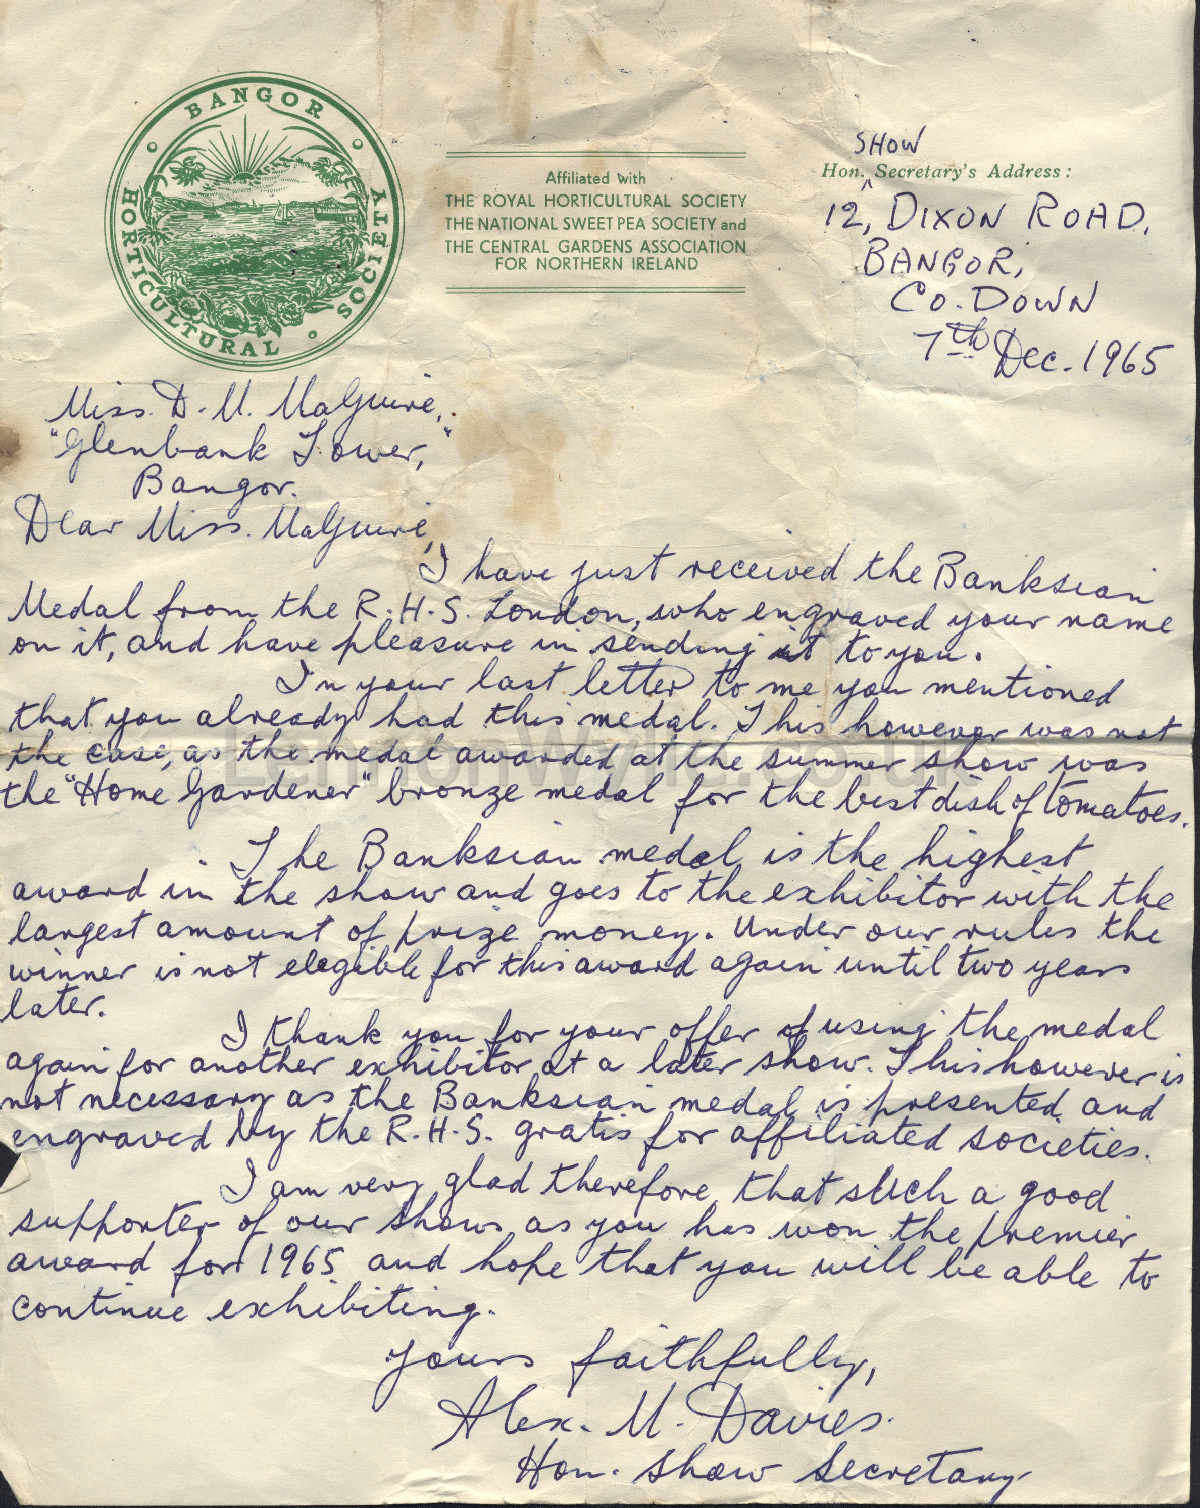 BANGOR HORTICULTURAL SOCIETY
Affiliated with
THE ROYAL HORTICULTURAL SOCIETY
THE NATIONAL SWEET PEA SOCIETY and
THE CENTRAL GARDENS ASSOCIATION
FOR NORTHERN IRELAND
SHOW
Hon. ^ Secretary's Address:
12, DIXON ROAD,
BANGOR,
CO. DOWN
7th Dec. 1965
Miss. D. M. MaGuire,
"Glenbank Tower,"
Bangor.
Dear Miss. MaGuire,
I have just received the Banksian
Medal from the R.H.S. London, who engraved your name
on it, and have pleasure in sending it to you.
In your last letter to me you mentioned
that you already had this medal. This however was not
the case, as the medal awarded at the summer show was
the "Home Gardener" bronze medal for the best dish of tomatoes.
The Banksian medal is the highest
award in the show and goes to the exhibitor with the
largest amount of prize money. Under our rules the
winner is not elegible for this award again until two years
later.
I thank you for your offer of using the medal
again for another exhibitor at a later show. This however is
not necessary as the Banksian medal is presented and
engraved by the R.H.S. gratis for affiliated societies.
I am very glad therefore, that such a good
supporter of our shows as you has won the premier
award for 1965 and hope that you will be able to
continue exhibiting.
Yours faithfully,
Alex. M. Davies.
Hon. Show Secretary